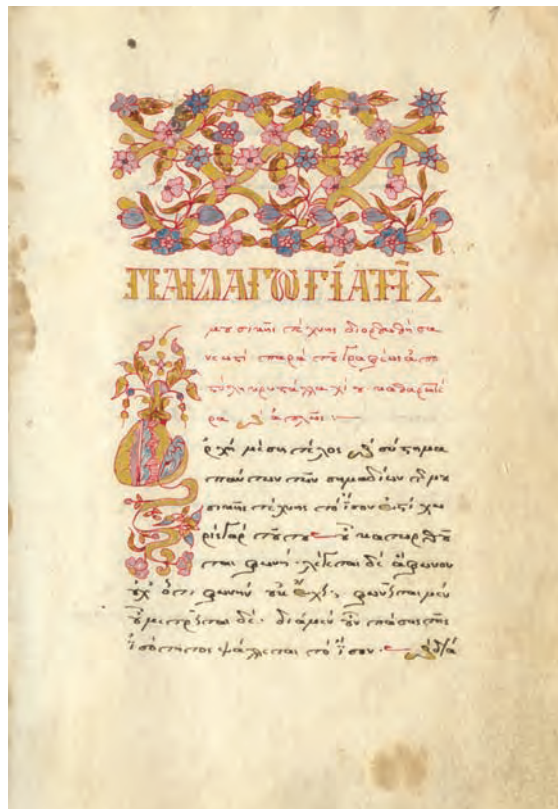 ΠΑΙΔΑΓΩΓΊΑ ΤῊΣ
μουσικῆς τέχνης διορθωθῆσα
νεωστὶ παρὰ τοῦ Γραφέως
καθαρωτέ
ρα
Ἀρχὴ μέση τέλος καὶ σύστημα
πάντων τῶν σημαδίων τῆς μου
σικῆς τέχνης τὸ ἴσον ἐστί χω
ρὶς γὰρ τούτου οὐ κατορθοῦ
ται φωνή· λέγεται δὲ ἄφωνον
οὐχ ὅτι φωνὴν οὐκ ἔχει, φωνεῖται μὲν
οὐ μετρεῖται δέ· διὰ μὲν οὖν πάσης τῆς
ἰσότητος ψάλλεται τὸ ἴσον· διὰ